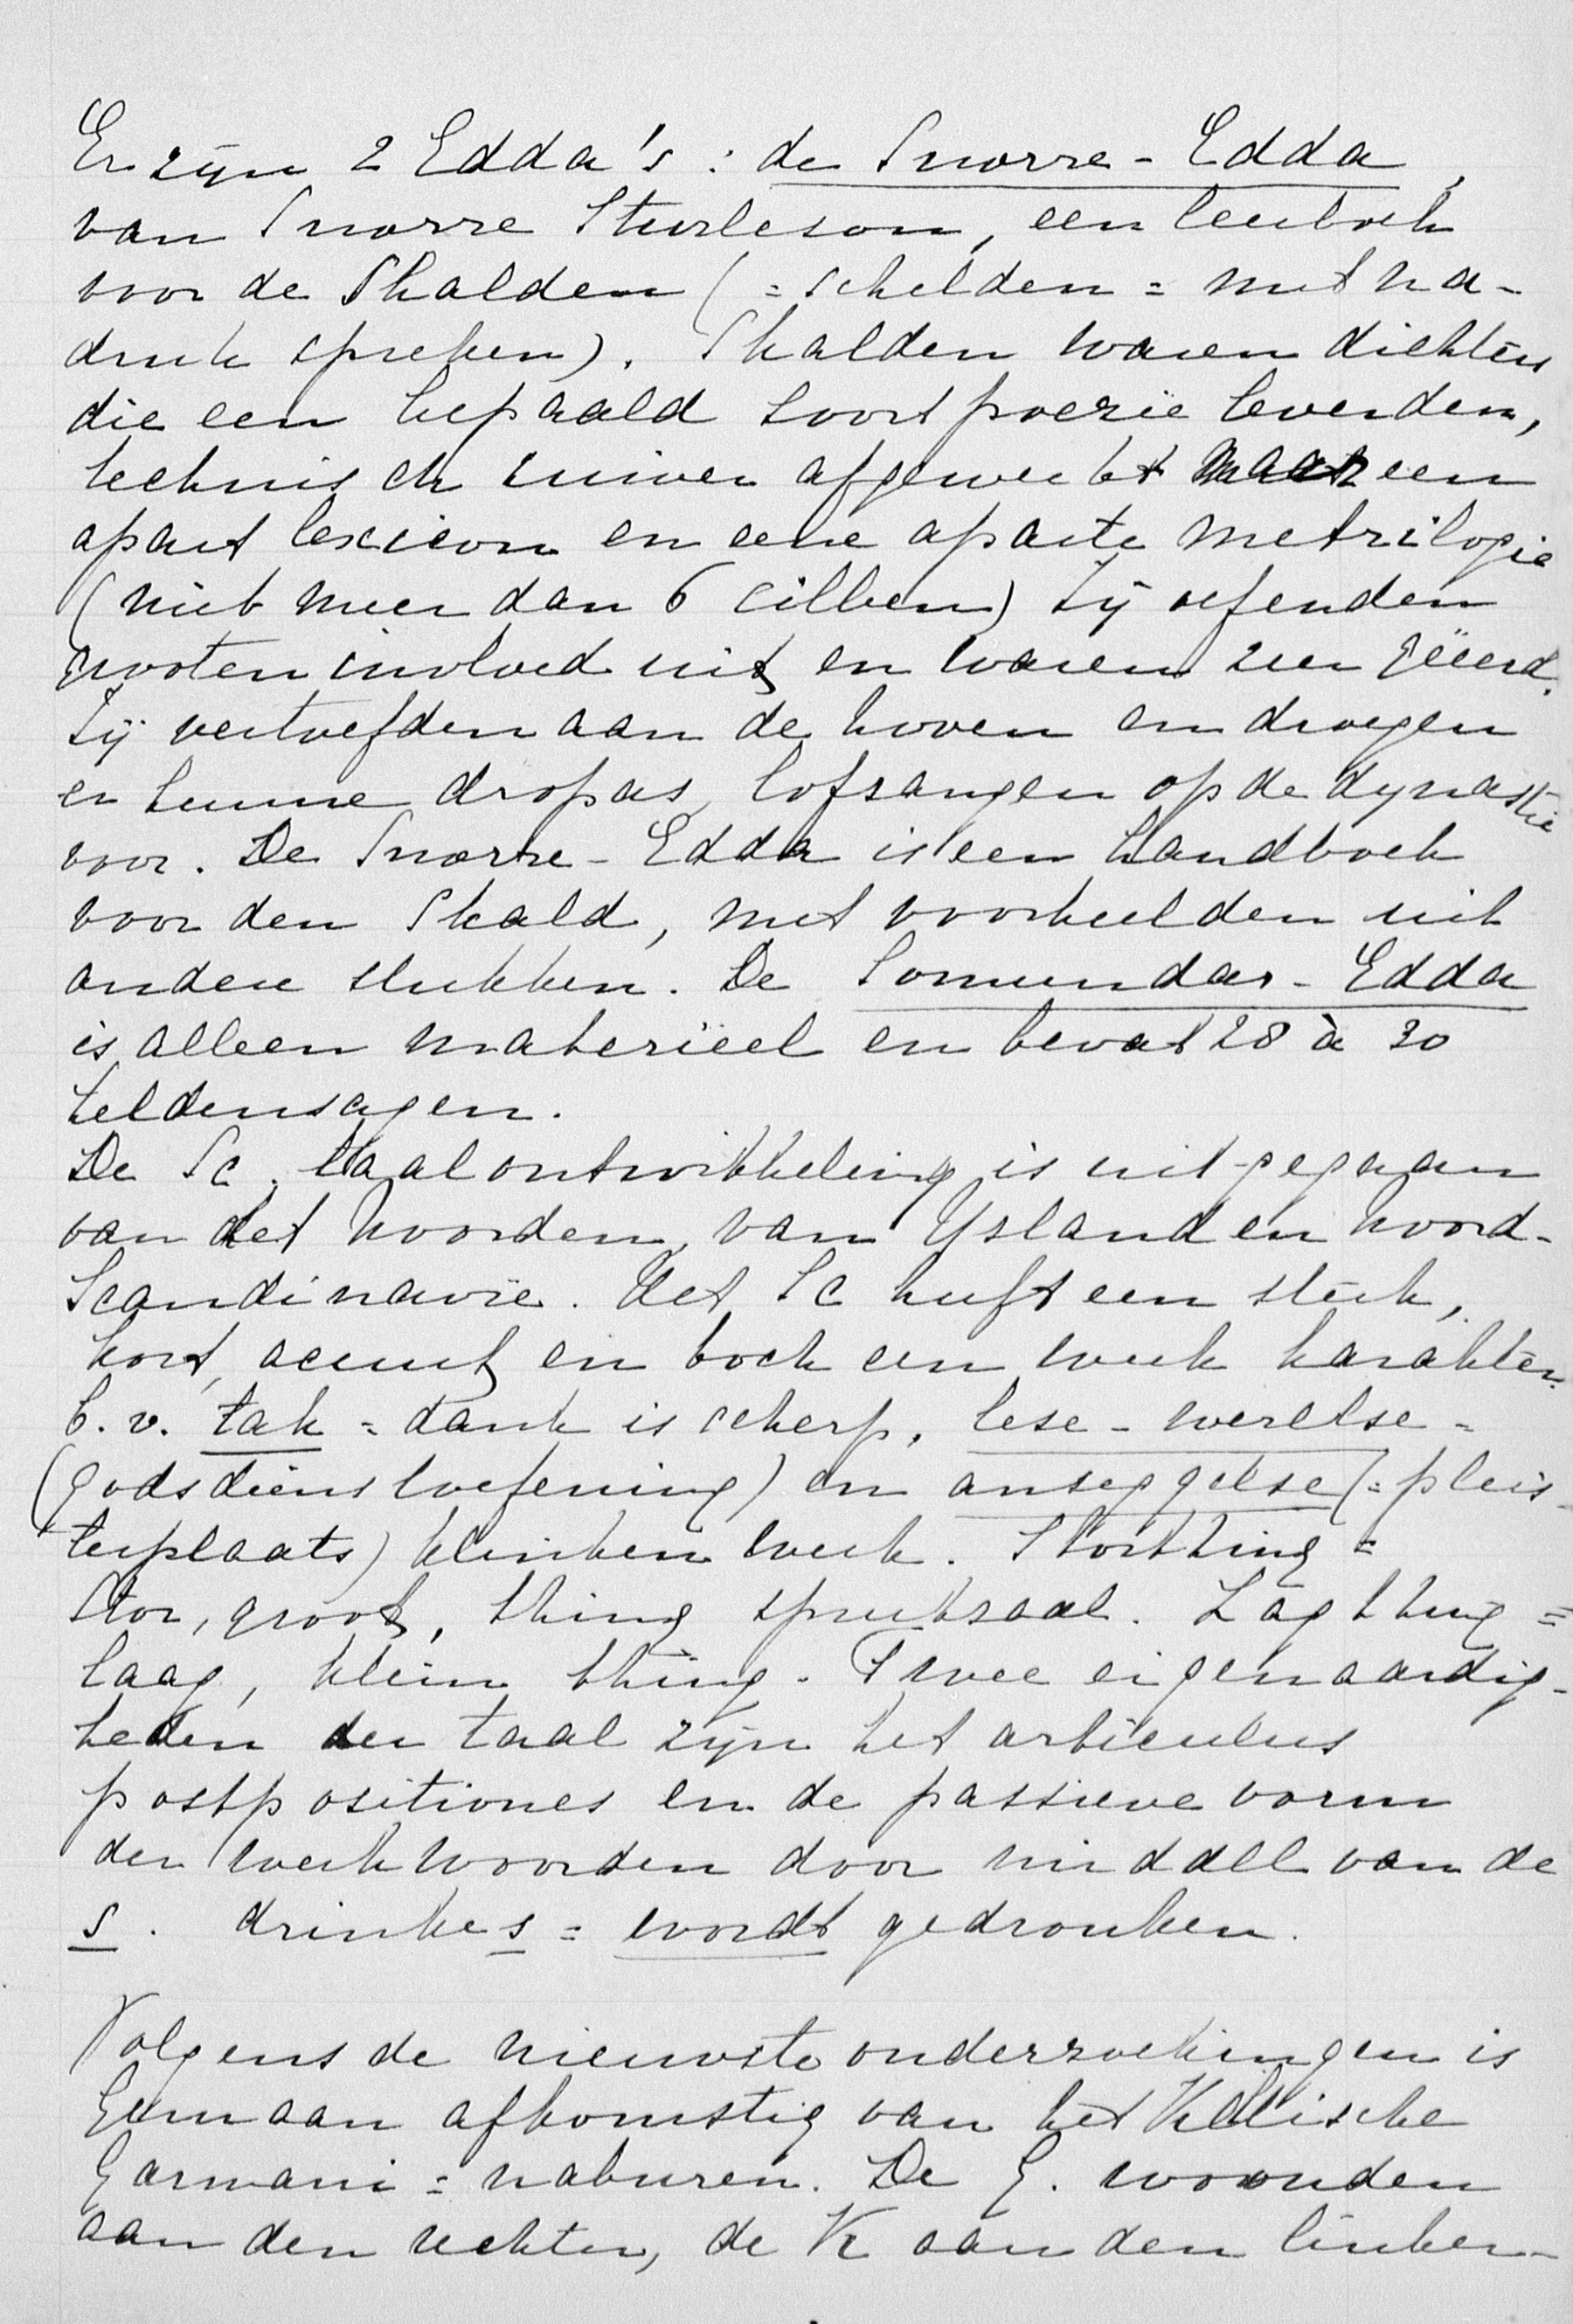 Er zijn 2 Edda's : de Snorre - Edda,
van Snorre Sturleson, een leerboek
voor de Skalden (= schelden = met na-
druk spreken). Skalden waren dichters
die een bepaald soort poezie leverden,
technisch zuiver afgewerkt maar een
apart lexicon en eene aparte metrilogie
(niet meer dan 6 cilben) Zij oefenden
grooten invloed uit en waren zeer geëerd.
Zij vertoefden aan de hoven en droegen
er hunne dropas, lofzangen op de dynastie
voor. De Snorre - Edda is een handboek
voor den Skald, met voorbeelden uit
andere stukken. De Somundar - Edda
is alleen materieel en bevat 28 à 30
heldensagen.
De Sc. taalontwikkeling is uitgegaan
van het Noorden, van Ysland en Noord-
Scandinavie. Het Sc heeft een sterk,
kort, accent en toch een week karakter.
b.v. tak = dank is scherp, lese - werelse =
(godsdienstoefening) en anseggelse (= pleis-
terplaats) klinken week. Storthing =
Stor, groot, thing spreekzaal. Lagthing =
laag, klein thing. Twee eigenaardig-
heden der taal zijn het articulus
postpositiones en de passieve vorm
der werkwoorden door middel van de
s. drinkes = wordt gedronken.
Volgens de nieuwste onderzoekingen is
Germaan afkomstig van het Keltische
Garmani = naburen. De G. woonden
aan den rechter, de K aan den linker-